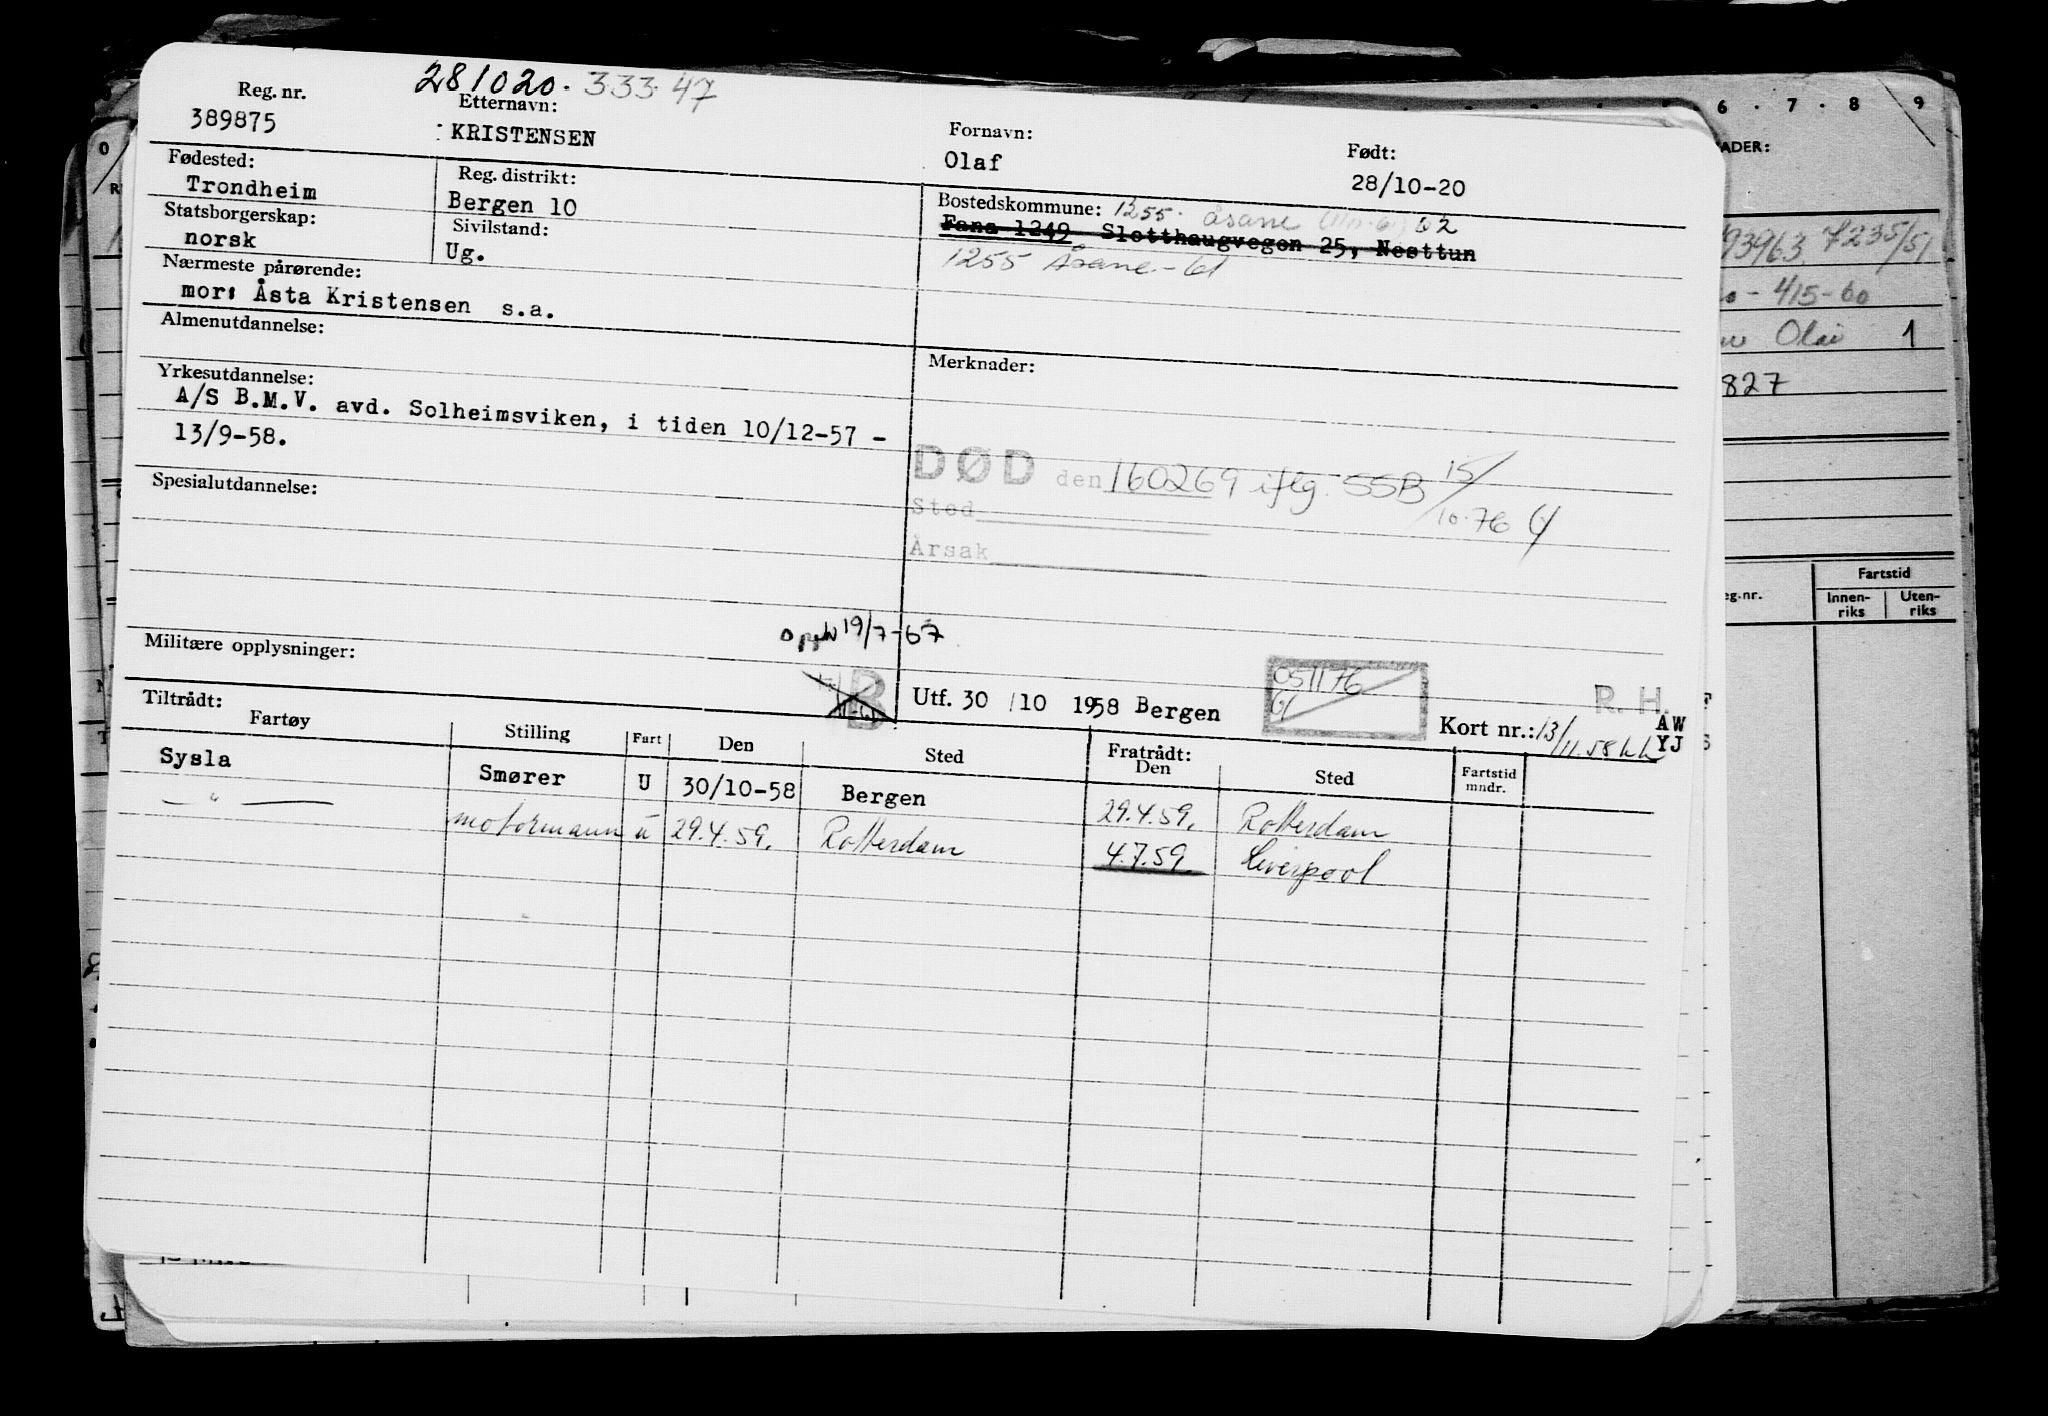 281020. 333.47
Reg. nr. Etternavn: Fornavn: Født:
389875 KRISTENSEN Olaf 28/10-20
Fødested: Reg. distrikt: Bostedskommune: 1255. Åsane 02
Trondheim Bergen 10 Fana 1249 Slotthaugvegen 25, Nesttun
Statsborgerskap: Sivilstand: 1255 Åsane - 61
norsk Ug.
Nærmeste pårørende:
mor: Åsta Kristensen s.a.
Almenutdannelse: Merknader:
Yrkesutdannelse:
A/S B.M.V. avd. Solheimsviken, i tiden 10/12-57 -
13/9-58.
DØD den 160269 iflg. SSB 15/10-76
Spesialutdannelse: Sted
Årsak
19/7-67
Militære opplysninger:
B Utf. 30 /10 1958 Bergen 051176 R. H.
Kort nr.: 13/11.58 AW
YJ
Tiltrådt: Fratrådt:
Fartøy Stilling Fart Den Sted Den Sted Fartstid mndr.
Sysla Smører U 30/10-58 Bergen 29.4.59. Rotterdam
— " — motormann u 29.4.59. Rotterdam 4.7.59. Liverpool
6 . 7 . 8 9
ADER:
93963 7235/51
- 4/5-60
Olai 1
827
eg.nr. Fartstid
Innen-riks Uten-riks
0